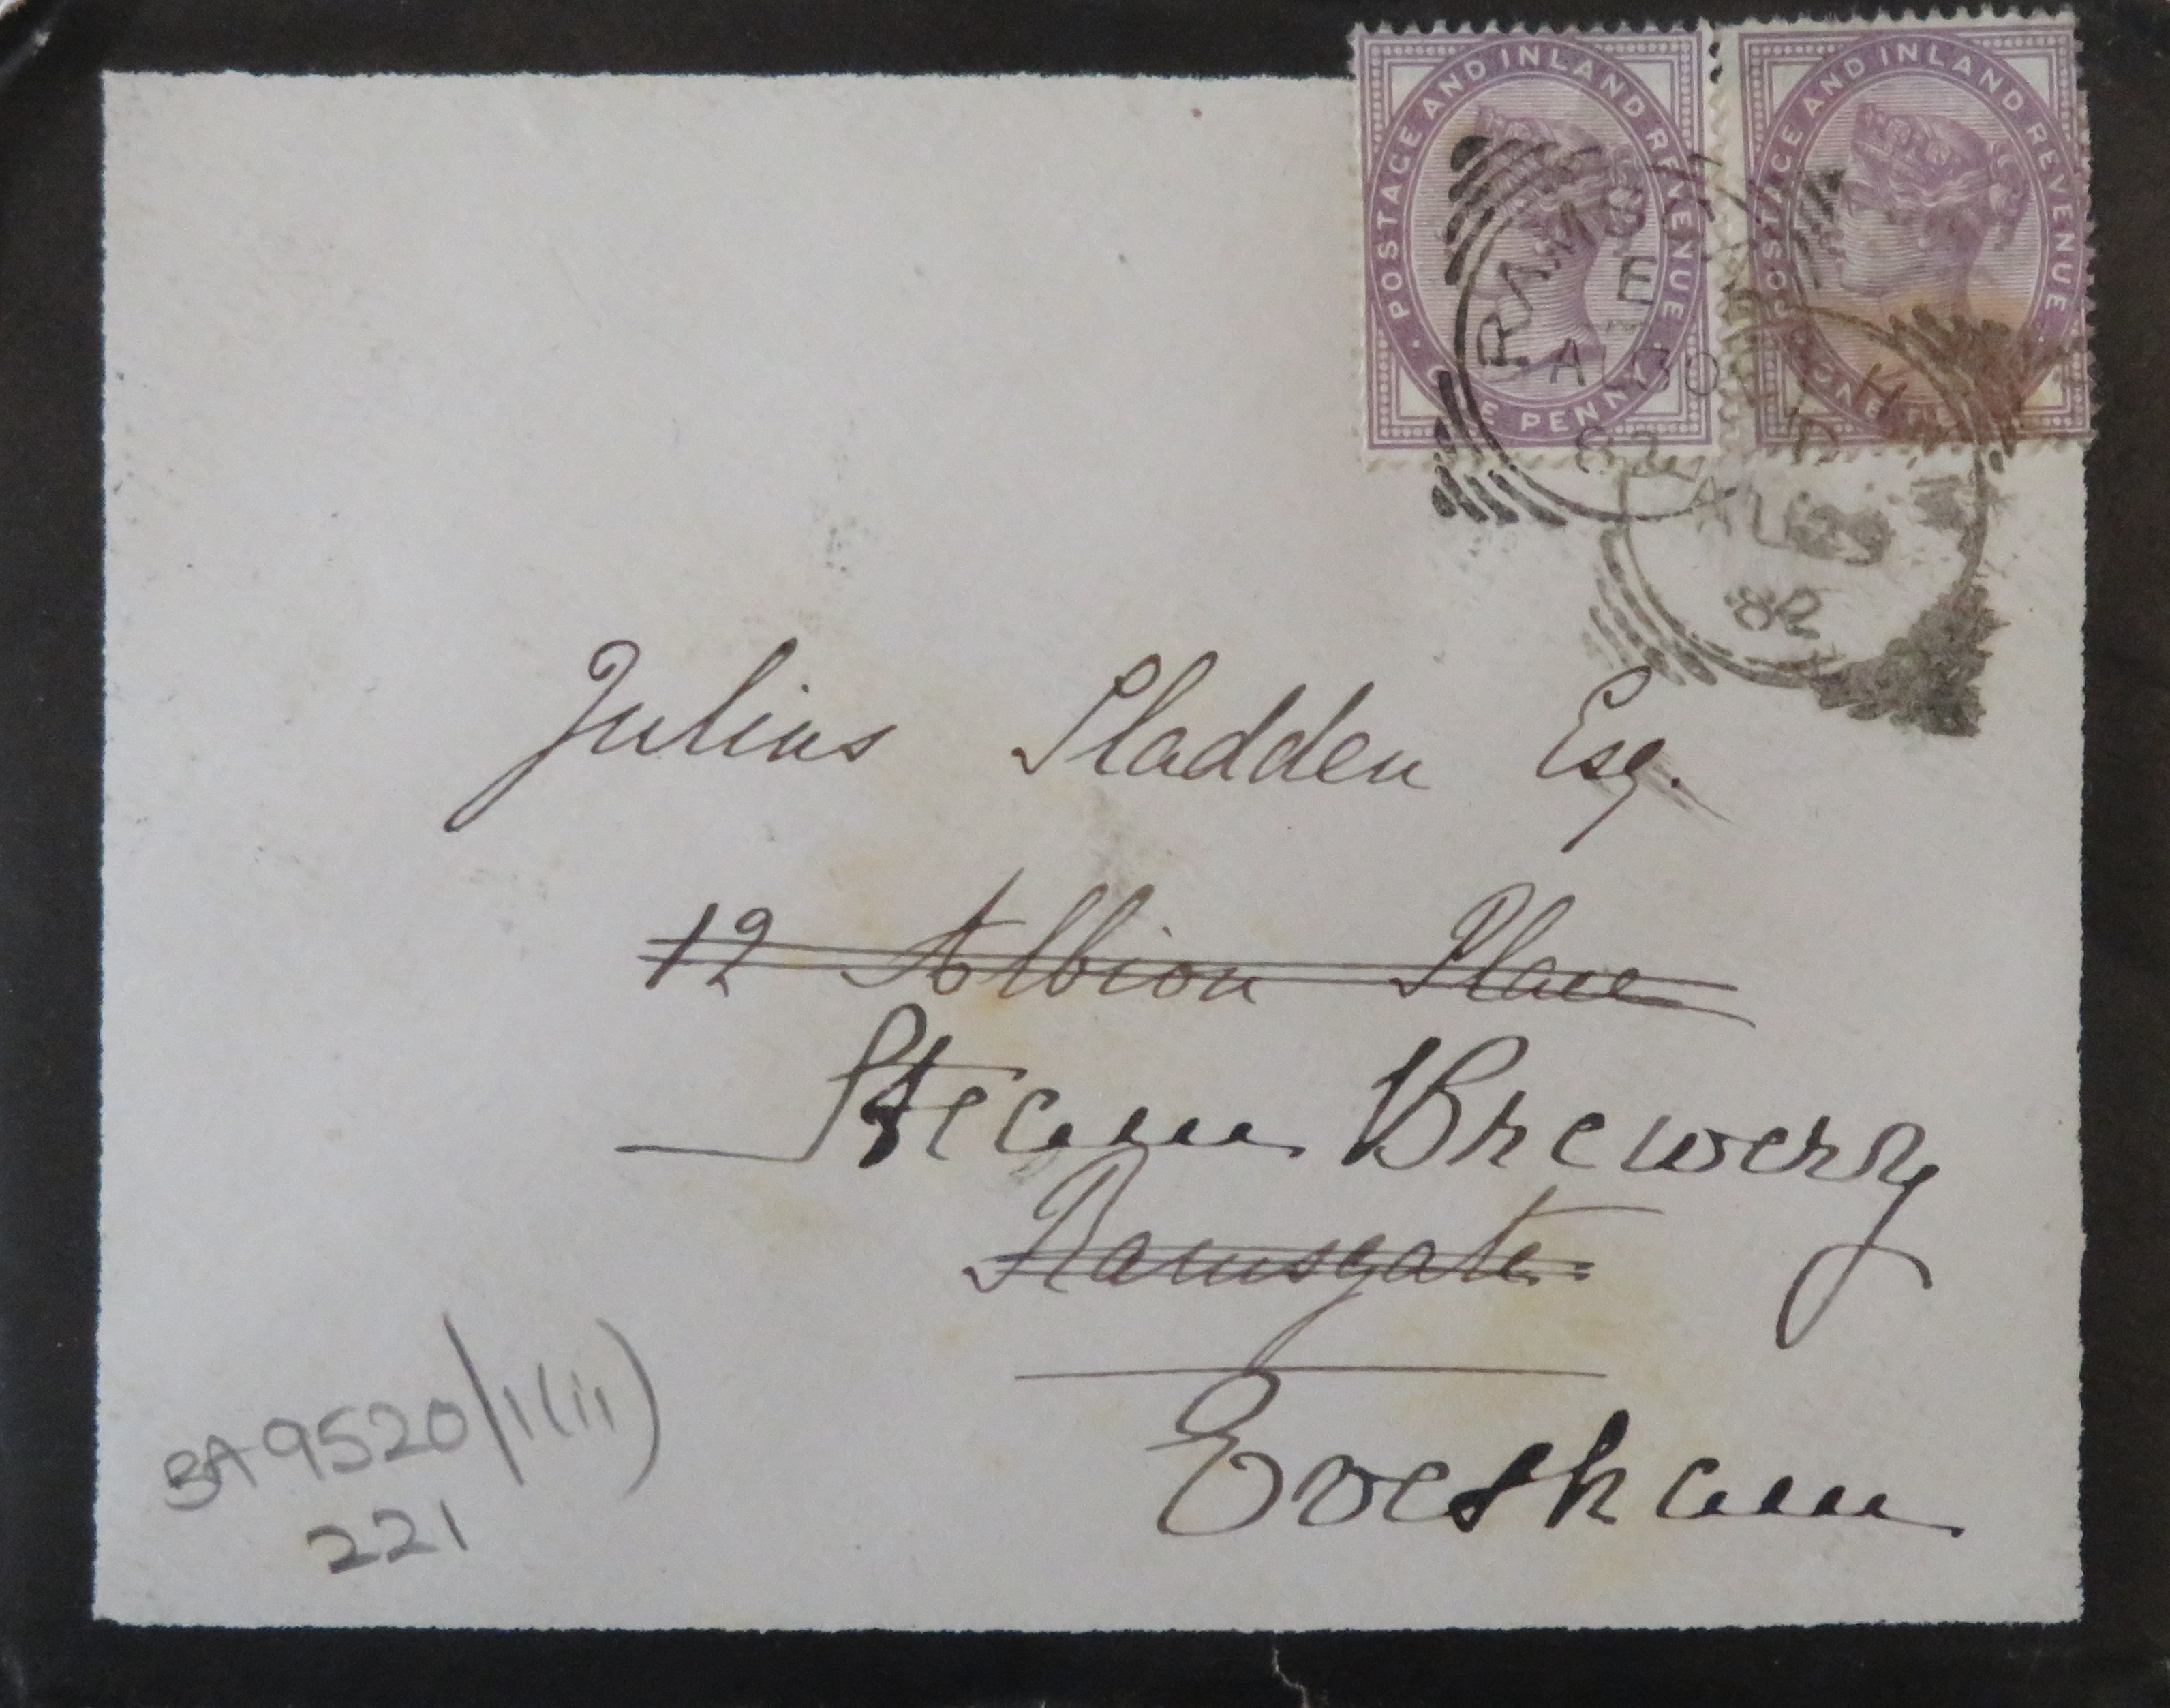 POSTAGE AND INLAND REVENUE
E PENNY
POSTAGE AND INLAND REVENUE
ONE
RAMSG
E
AU 30
82
H
D
AU 29
82
Julius Sladden Esq.
12 Albion Place
Steam Brewery
Ramsgate
Evesham
BA9520/1(ii)
221